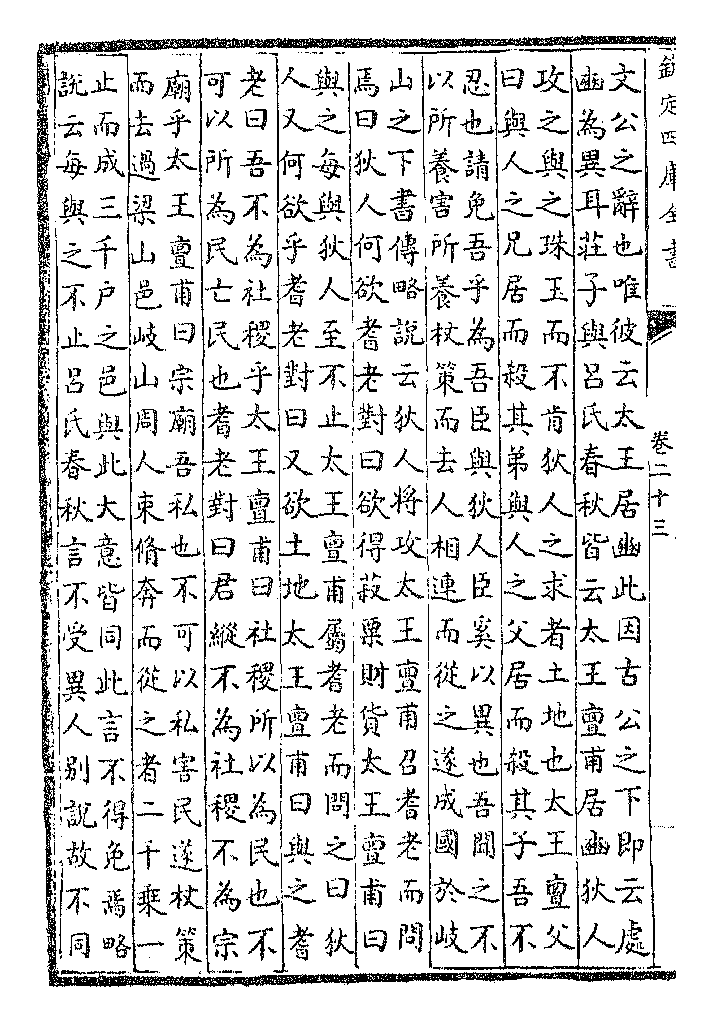 欽定四庫全書
卷二十三
文公之辭也唯彼云太王居豳此因古公之下即云處
豳為異耳莊子與呂氏春秋皆云太王亶甫居豳狄人
攻之與之珠玉而不肯狄人之求者土地也太王亶父
曰與人之兄居而殺其弟與人之父居而殺其子吾不
忍也請免吾乎為吾臣與狄人臣奚以異也吾聞之不
以所養害所養杖策而去人相連而從之遂成國於岐
山之下書傳略說云狄人將攻太王亶甫召耆老而問
焉曰狄人何欲耆老對曰欲得菽粟財貨太王亶甫曰
與之每與狄人至不止太王亶甫屬耆老而問之曰狄
人又何欲乎耆老對曰又欲土地太王亶甫曰與之耆
老曰吾不為社稷乎太王亶甫曰社稷所以為民也不
可以所為民亡民也耆老對曰君縱不為社稷不為宗
廟乎太王亶甫曰宗廟吾私也不可以私害民遂杖策
而去過梁山邑岐山周人束脩奔而從之者二千乘一
止而成三千戶之邑與此大意皆同此言不得免焉略
說云每與之不止呂氏春秋言不受異人別說故不同